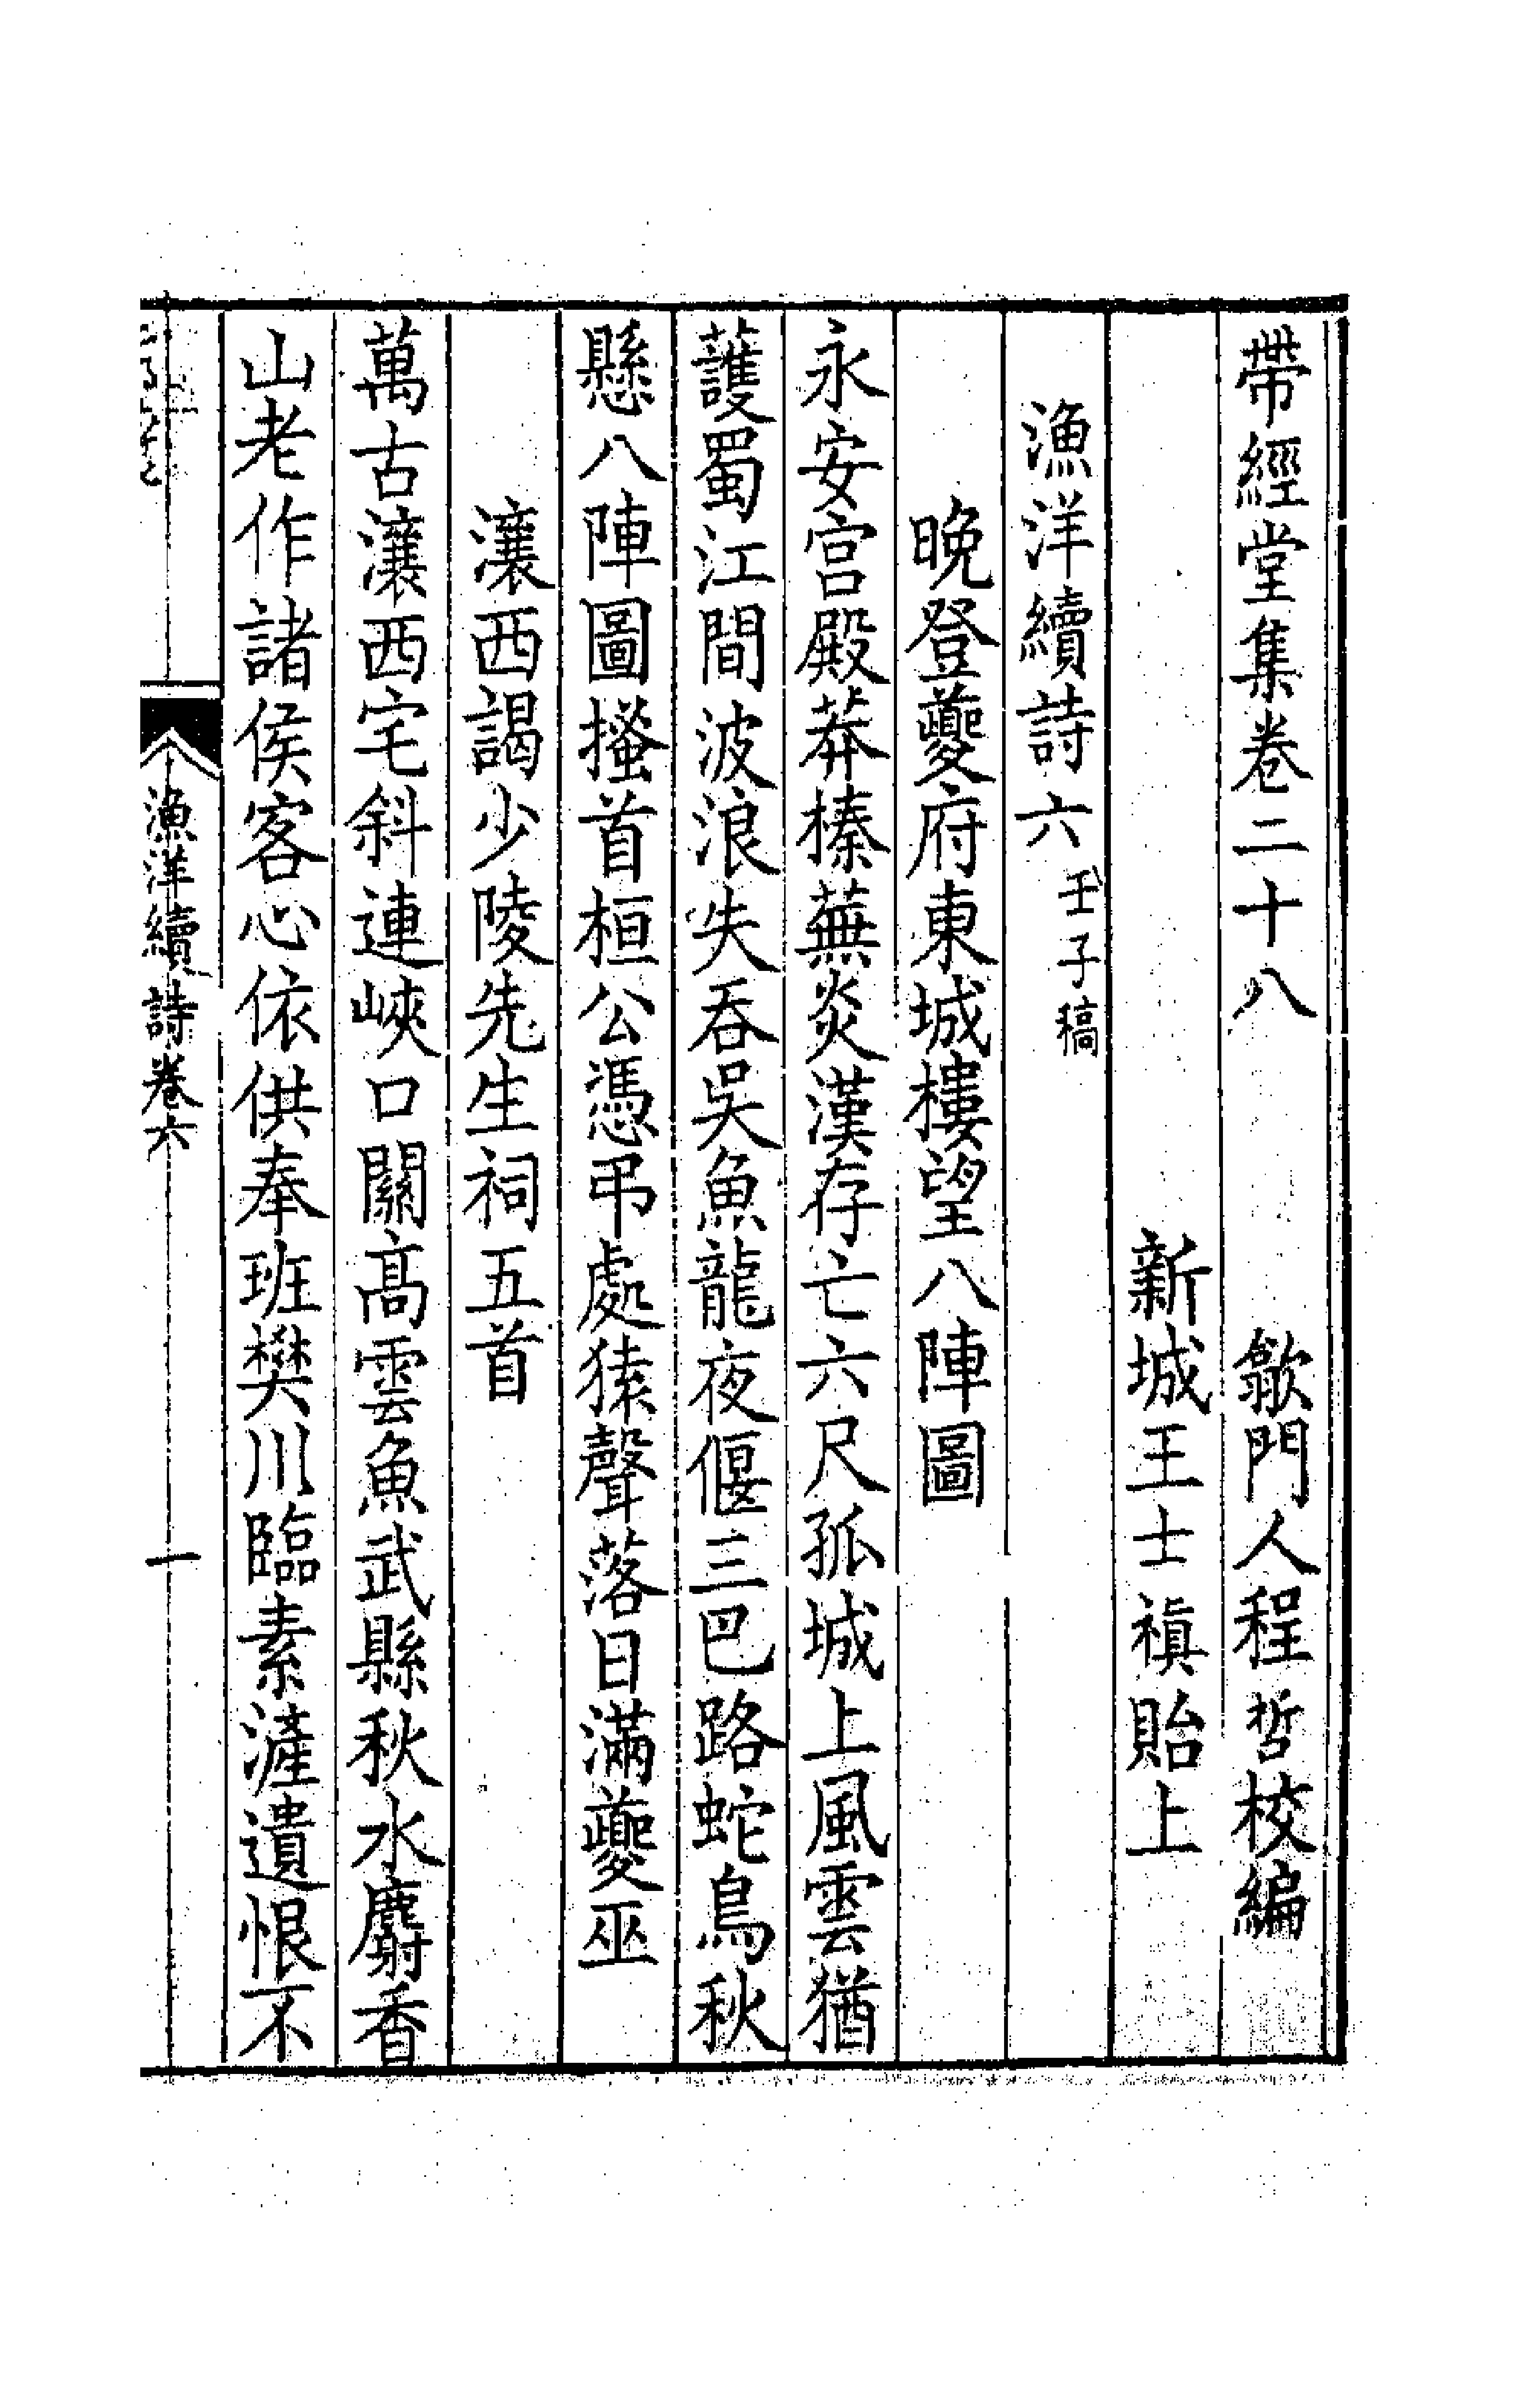 帶經堂集卷二十八　歙門人程哲校編
新城王士禛貽上
漁洋續詩六壬子稿
晚登夔府東城樓望八陣圖
永安宮殿莽榛蕪炎漢存亡六尺孤城上風雲猶
護蜀江間波浪失吞吳魚龍夜偃三巴路蛇鳥秋
懸八陣圖搔首桓公憑弔處猿聲落日滿夔巫
瀼西謁少陵先生祠五首
萬古瀼西宅斜連峽口關高雲魚武縣秋水麝香
山老作諸侯客心依供奉班樊川臨素滻遺恨不
漁洋續詩卷六　一